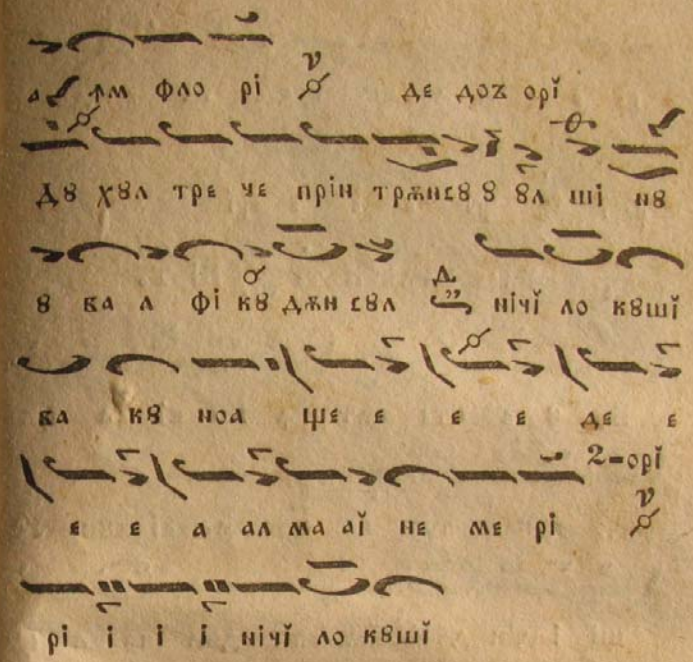 а ꙟм фло рі де доъ орĭ
Дꙋ хꙋл тре че прін трѫнсꙋ ꙋ ꙋл ші нꙋ
ꙋ ва л фі кꙋ дѫн сꙋл нічĭ ло кꙋшĭ
ва кꙋ ноа ще е е е де е
е е а ал ма аĭ не ме рі 2-орĭ
рі і і і нічĭ ло кꙋшĭ